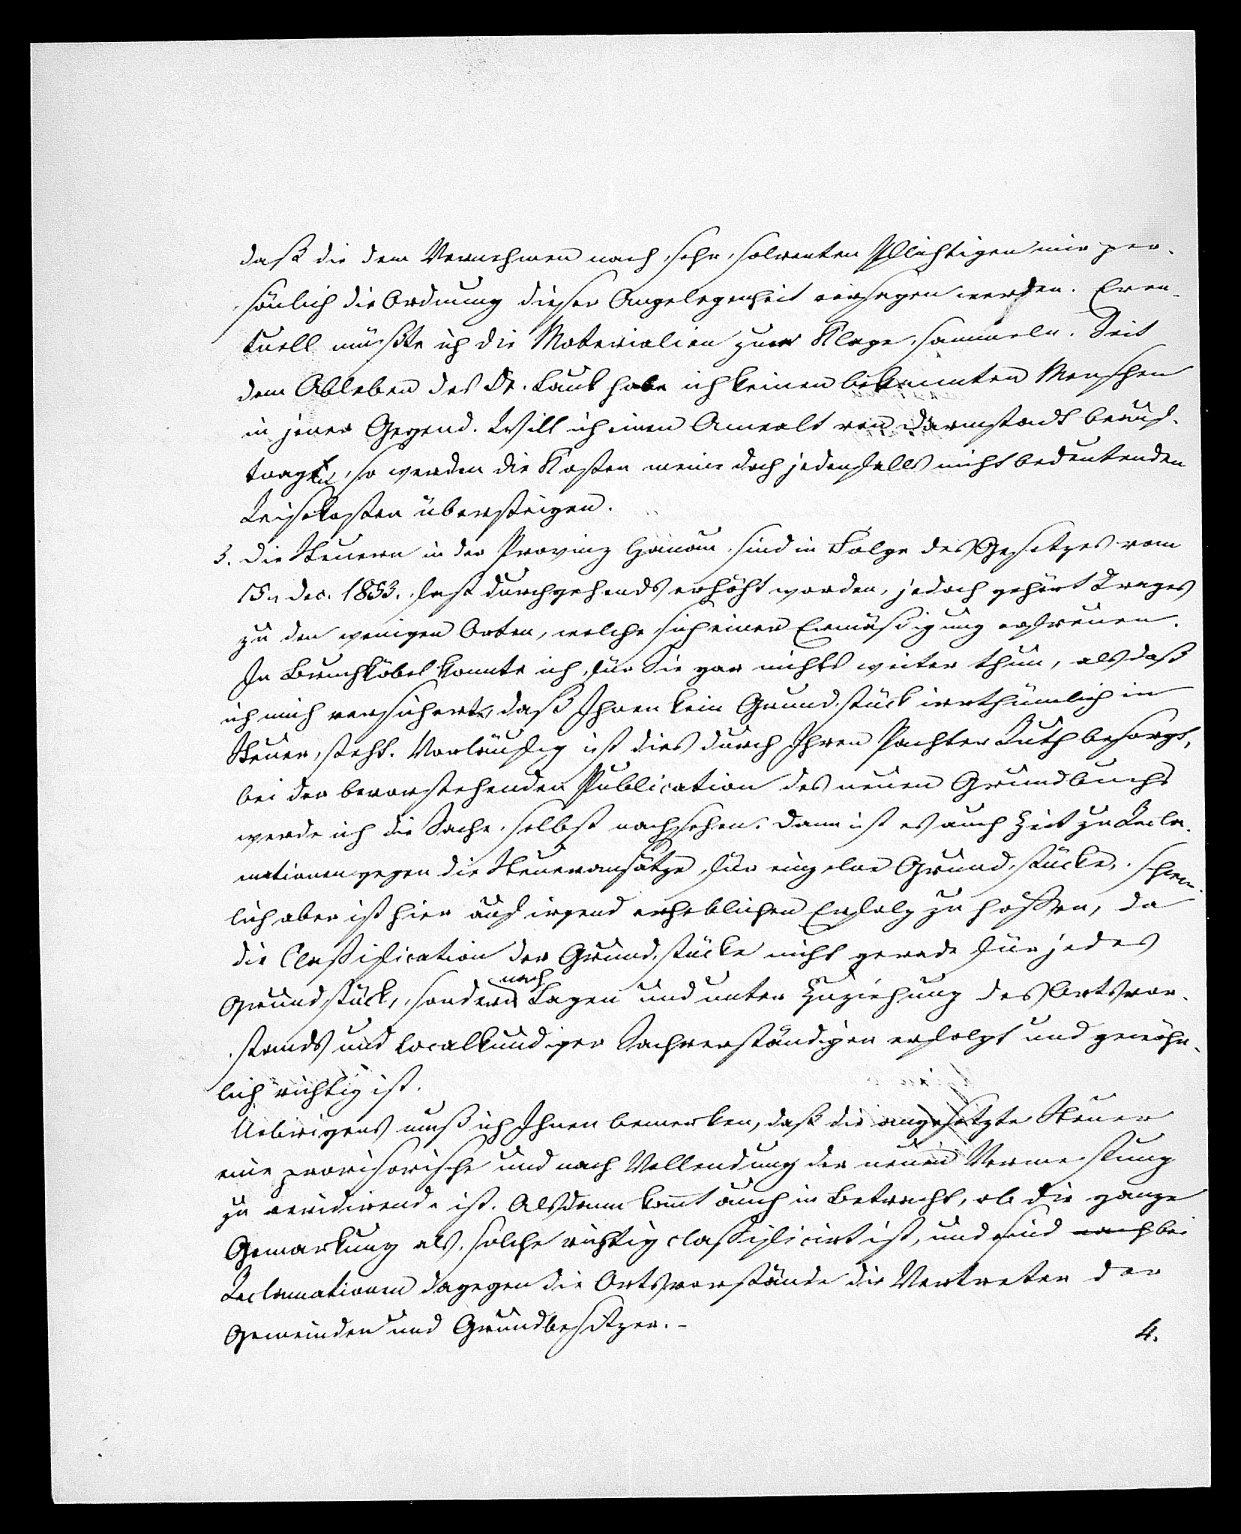 daß die dem Vernehmen nach sehr solventen Pflichtigen mir per-
sönlich die Ordnung dieser Angelegenheit versagen werden. Even-
tuell müßte ich die Materialien zur Klage sammeln. Seit
dem Ableben des Dr. Lauk habe ich keinen bekannten Menschen
in jener Gegend. Will ich einen Anwalt von Darmstadt beauf-
tragen, so werden die Kosten meine doch jedenfalls nicht bedeutenden
Reisekosten übersteigen.
3. Die Steuern in der Provinz Hanau sind in Folge des Gesetzes vom
15. Dec. 1853. fast durchgehends erhöht worden, jedoch gehört
zu den wenigen Orten, welche sich einer Ermäßigung erfreuen.
In Bruchköbel konnte ich für Sie gar nichts weiter thun, als daß
ich mich versicherte, daß Ihnen kein Grundstück irrthümlich in
Steuer steht. Vorläufig ist dies durch Ihren Pachter Ruth besorgt,
bei der bevorstehenden Publication des neuen Grundbuchs
werde ich die Sache selbst nachsehen. Dann ist es auch Zeit zu Recla-
mationen gegen die Steueransätze für einzelne Grundstücke, schwer-
lich aber ist hier auf irgend erheblichen Erfolg zu hoffen, da
die Classification der Grundstücke nicht gerade für jedes
Grundstück, sondern nach Lagen und unter Zuziehung des Ortsvor-
stands und localkundiger Sachverständigen erfolgt und gewöhn-
lich richtig ist.
Uebrigens muß ich Ihnen bemerken, daß die angesetzte Steuer
eine provisorische und nach Vollendung der neuen Vermessung
zu revidirende ist. Alsdann komt auch in Betracht, ob die ganze
Gemarkung als solche richtig classificirt ist, und sind noch bei
Reclamationen dagegen die Ortsvorstände die Vertreter der
Gemeinden und Grundbesitzer. -
4.